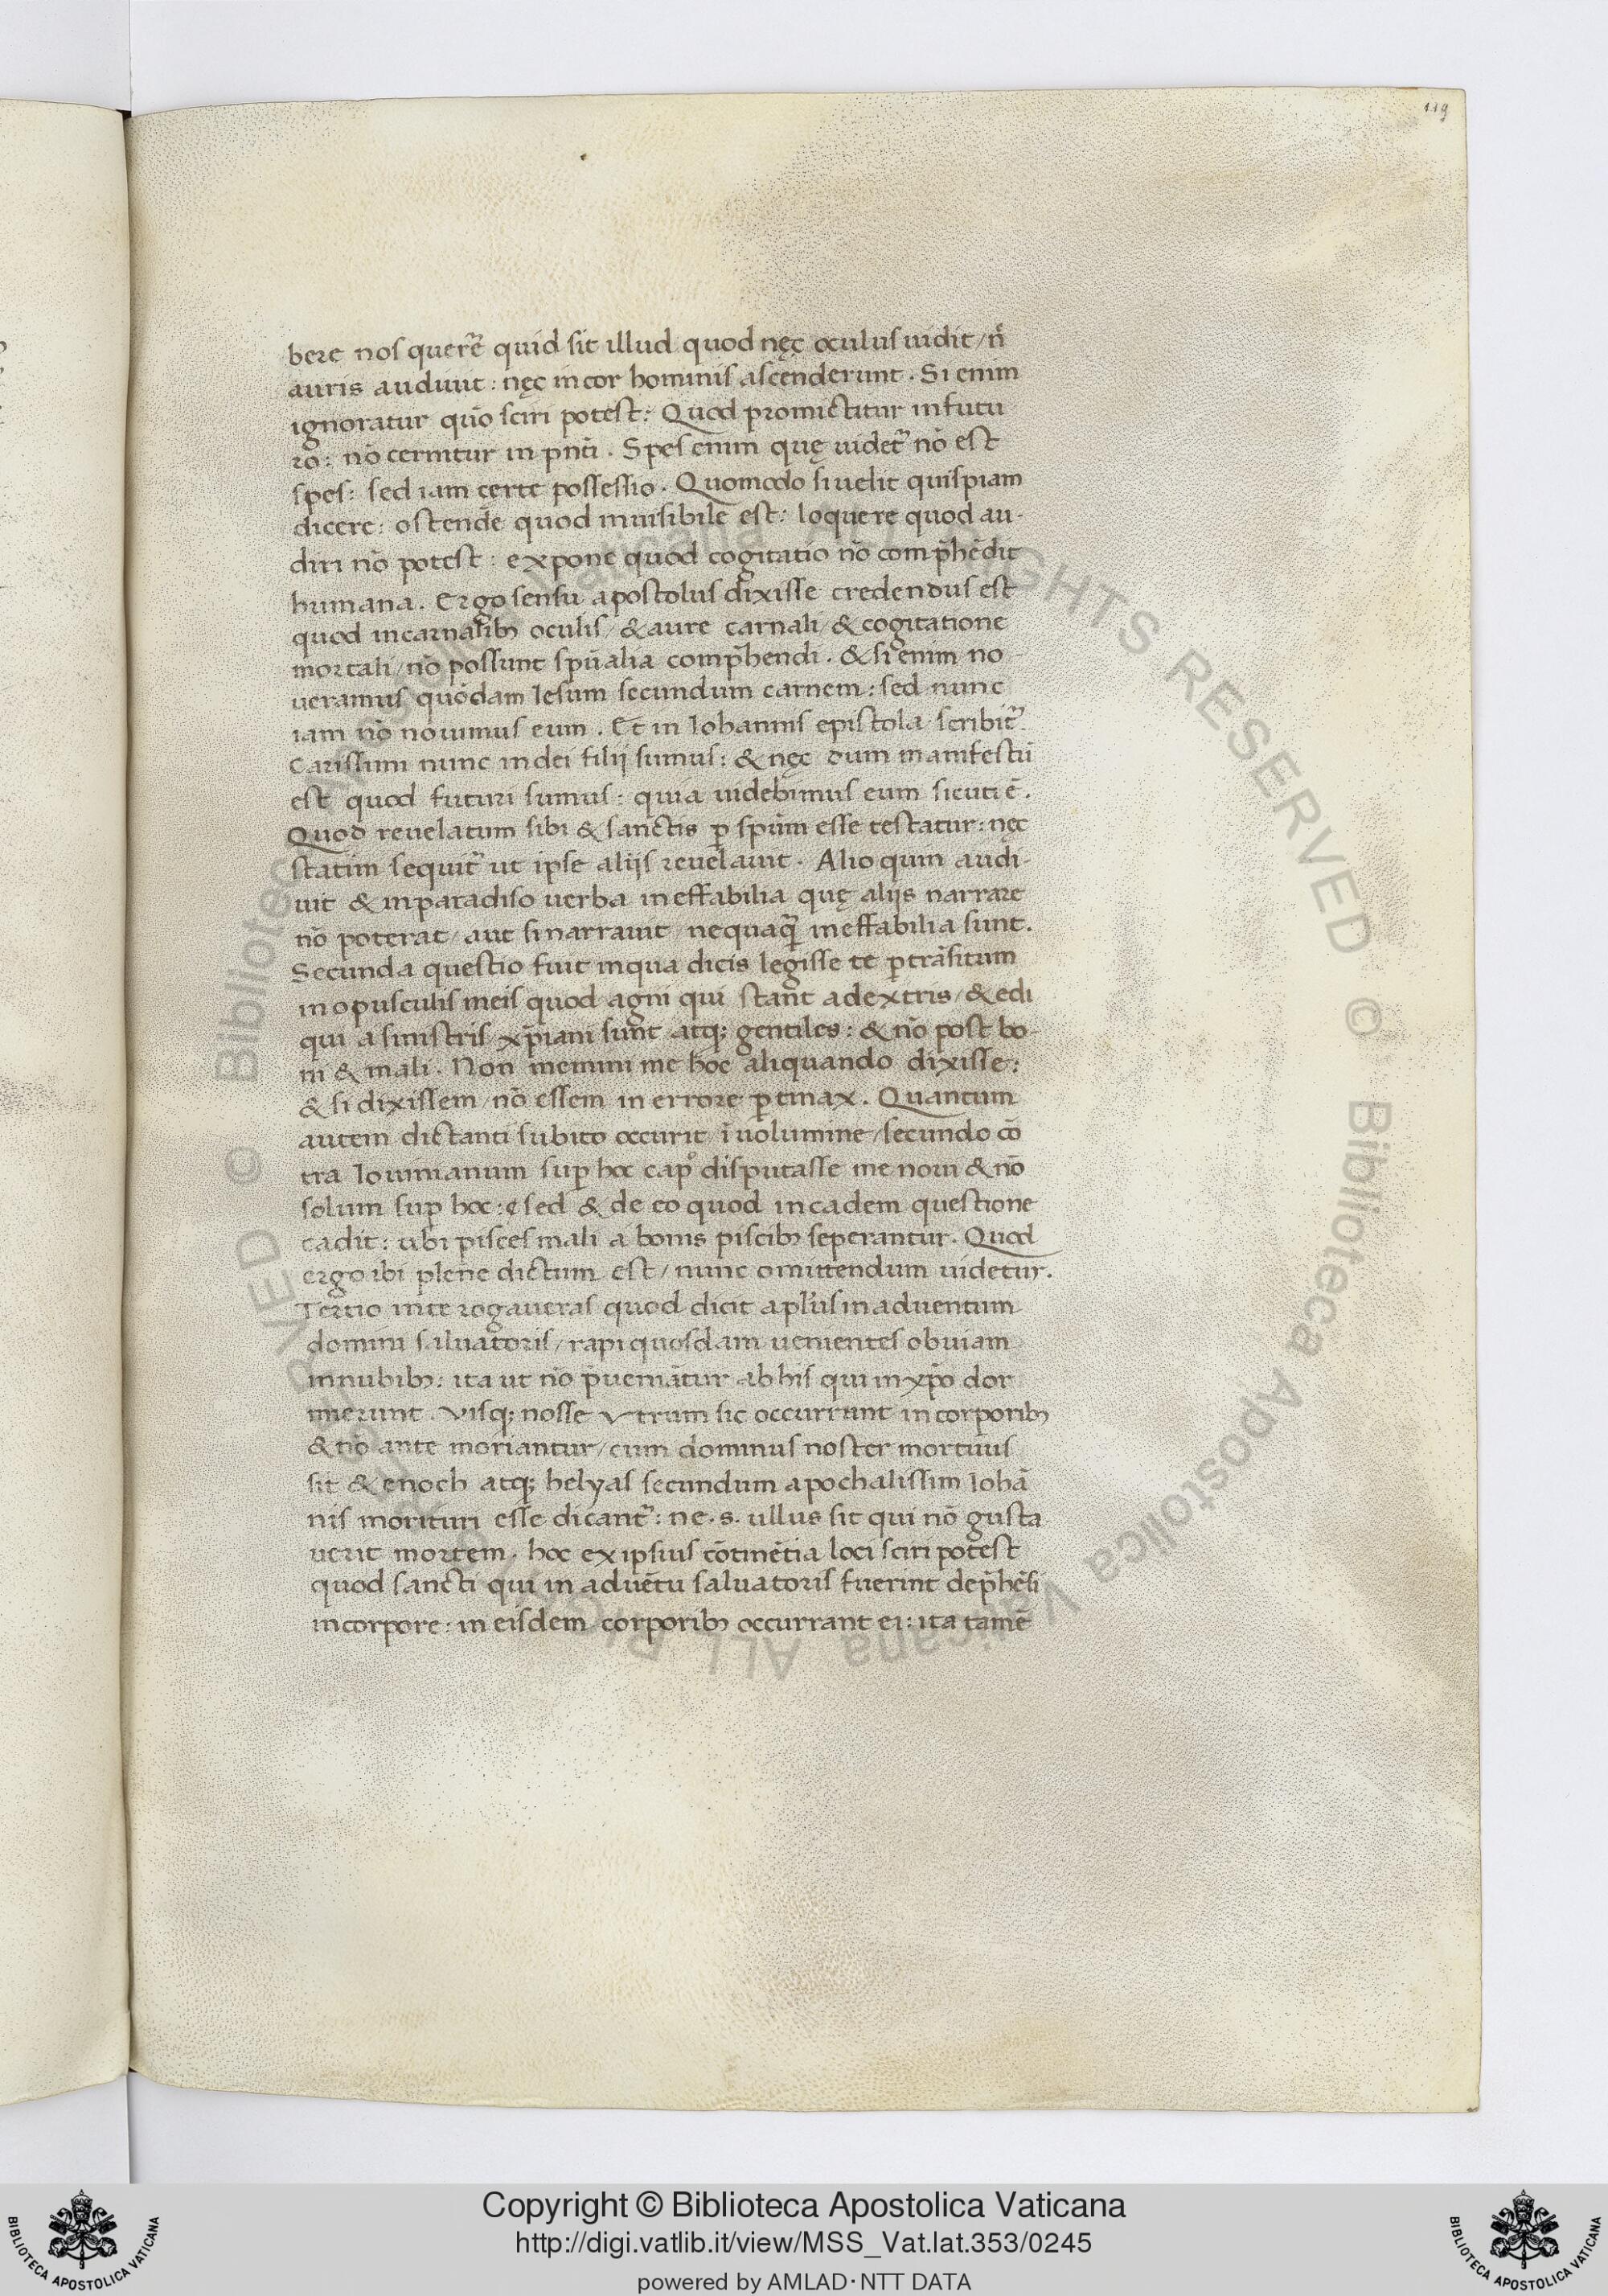 119
bere nos querẽ quid sit illud quod nęc oculus uidit/ n̄
auris audiuit: nęc in cor hominis ascenderunt. Si enim
ignoratur quō sciri potest: Quod promictitur in futu
ro: nō cernitur in pñti. Spes enim quę uidet᷑ nō est
spes: sed iam certe possessio. Quomodo si uelit quispiam
dicere: ostende quod inuisibile est: loquere quod au-
diri nō potest: expone quod cogitatio nō comp̃hēdit
humana. Ergo sensu apostolus dixisse credendus est
quod in carnalibꝫ oculis/ & aure carnali/ & cogitatione
mortali/ nō possunt spūalia comp̃hendi. & si enim no
ueramus quōdam Iesum secundum carnem: sed nunc
iam nō nouimus eum. Et in Iohannis epistola scribit᷑
Carissimi nunc in dei filij sumus: & nęc dum manifestū
est quod futuri sumus: quia uidebimus eum sicuti ē.
Quod reuelatum sibi & sanctis ꝑ spūm esse testatur: nęc
statim sequit᷑ ut ipse alijs reuelauit. Alio quin audi-
uit & in paradiso uerba ineffabilia quę alijs narrare
nō poterat/ aut si narrauit/ nequaq̃ ineffabilia sunt.
Secunda questio fuit in qua dicis legisse te ꝑtrāsitum
in opusculis meis quod agni qui stant a dextris/ & edi
qui a sinistris xp̃iani sunt atqꝫ gentiles: & nō post bo-
ni & mali. Non memini me hoc aliquando dixisse:
& si dixissem/ nō essem in errore ꝑtinax. Quantum
autem dictanti subito occurit/ ī uolumine/ secundo cō
tra Iouinianum suꝑ hoc capº disputasse me noui & nō
solum suꝑ hoc: sed & de eo quod in eadem questione
cadit: ubi pisces mali a bonis piscibꝫ seperantur. Quod
ergo ibi plene dictum est/ nunc omittendum uidetur.
Tertio inte rogaueras quod dicit aplus in aduentum
domini saluatoris/ rapi quosdam uenientes obuiam
in nubibꝫ: ita ut nō p̃ueniātur ab his qui in xp̃o dor
mierunt. Visqꝫ nosse Vtrum sic occurrant in corporibꝫ
& nō ante moriantur/ cum dominus noster mortuus
sit & enoch atqꝫ helyas secundum apochalissim Iohā
nis morituri esse dicant᷑: ne. s. ullus sit qui nō gusta
uerit mortem. hoc ex ipsius cōtinētia loci sciri potest
quod sancti qui in aduētu saluatoris fuerint dep̃hēsi
in corpore: in eisdem corporibꝫ occurrant ei: ita tamē
© Biblioteca Apostolica Vaticana ALL RIGHTS RESERVED © Biblioteca Apostolica Vaticana ALL RIGHTS RESERVED
Copyright © Biblioteca Apostolica Vaticana
http://digi.vatlib.it/view/MSS_Vat.lat.353/0245
powered by AMLAD·NTT DATA
BIBLIOTECA APOSTOLICA VATICANA
BIBLIOTECA APOSTOLICA VATICANA